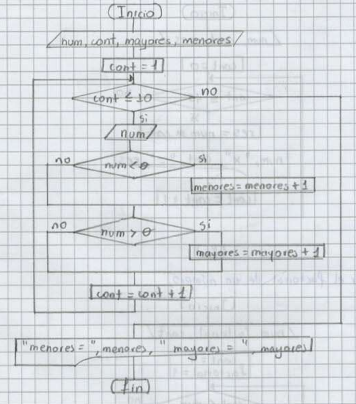 (Inicio)
num, cont, mayores, menores
cont = 1
cont ≤ 10 no
si
num
no num < 0 si
menores = menores + 1
no num > 0 si
mayores = mayores + 1
cont = cont + 1
"menores =", menores, " mayores = ", mayores
(fin)